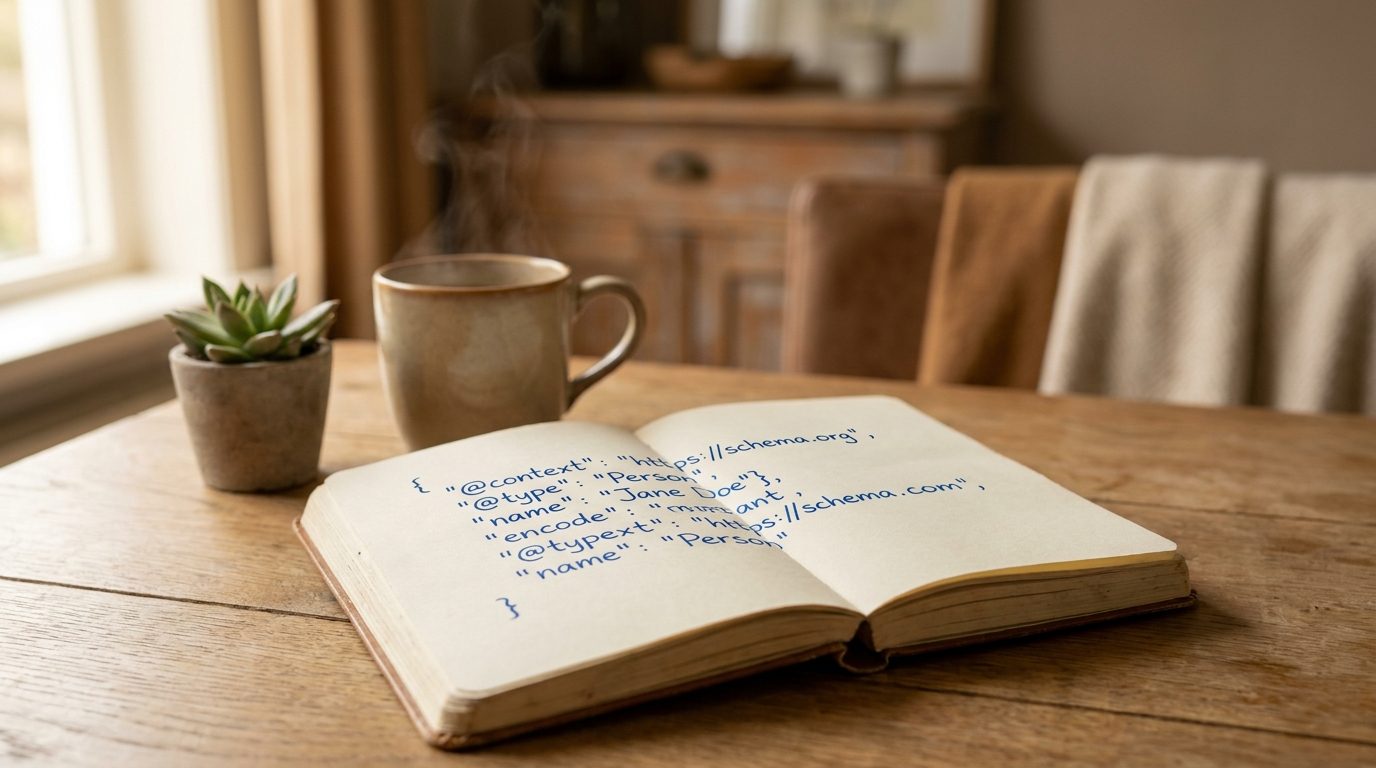 { "@context": "https://schema.org",
"@type": "Person",
"name": "Jane Doe"},
"encode": " ,
"@typext": "https://schema.com",
"name": "Person"
}